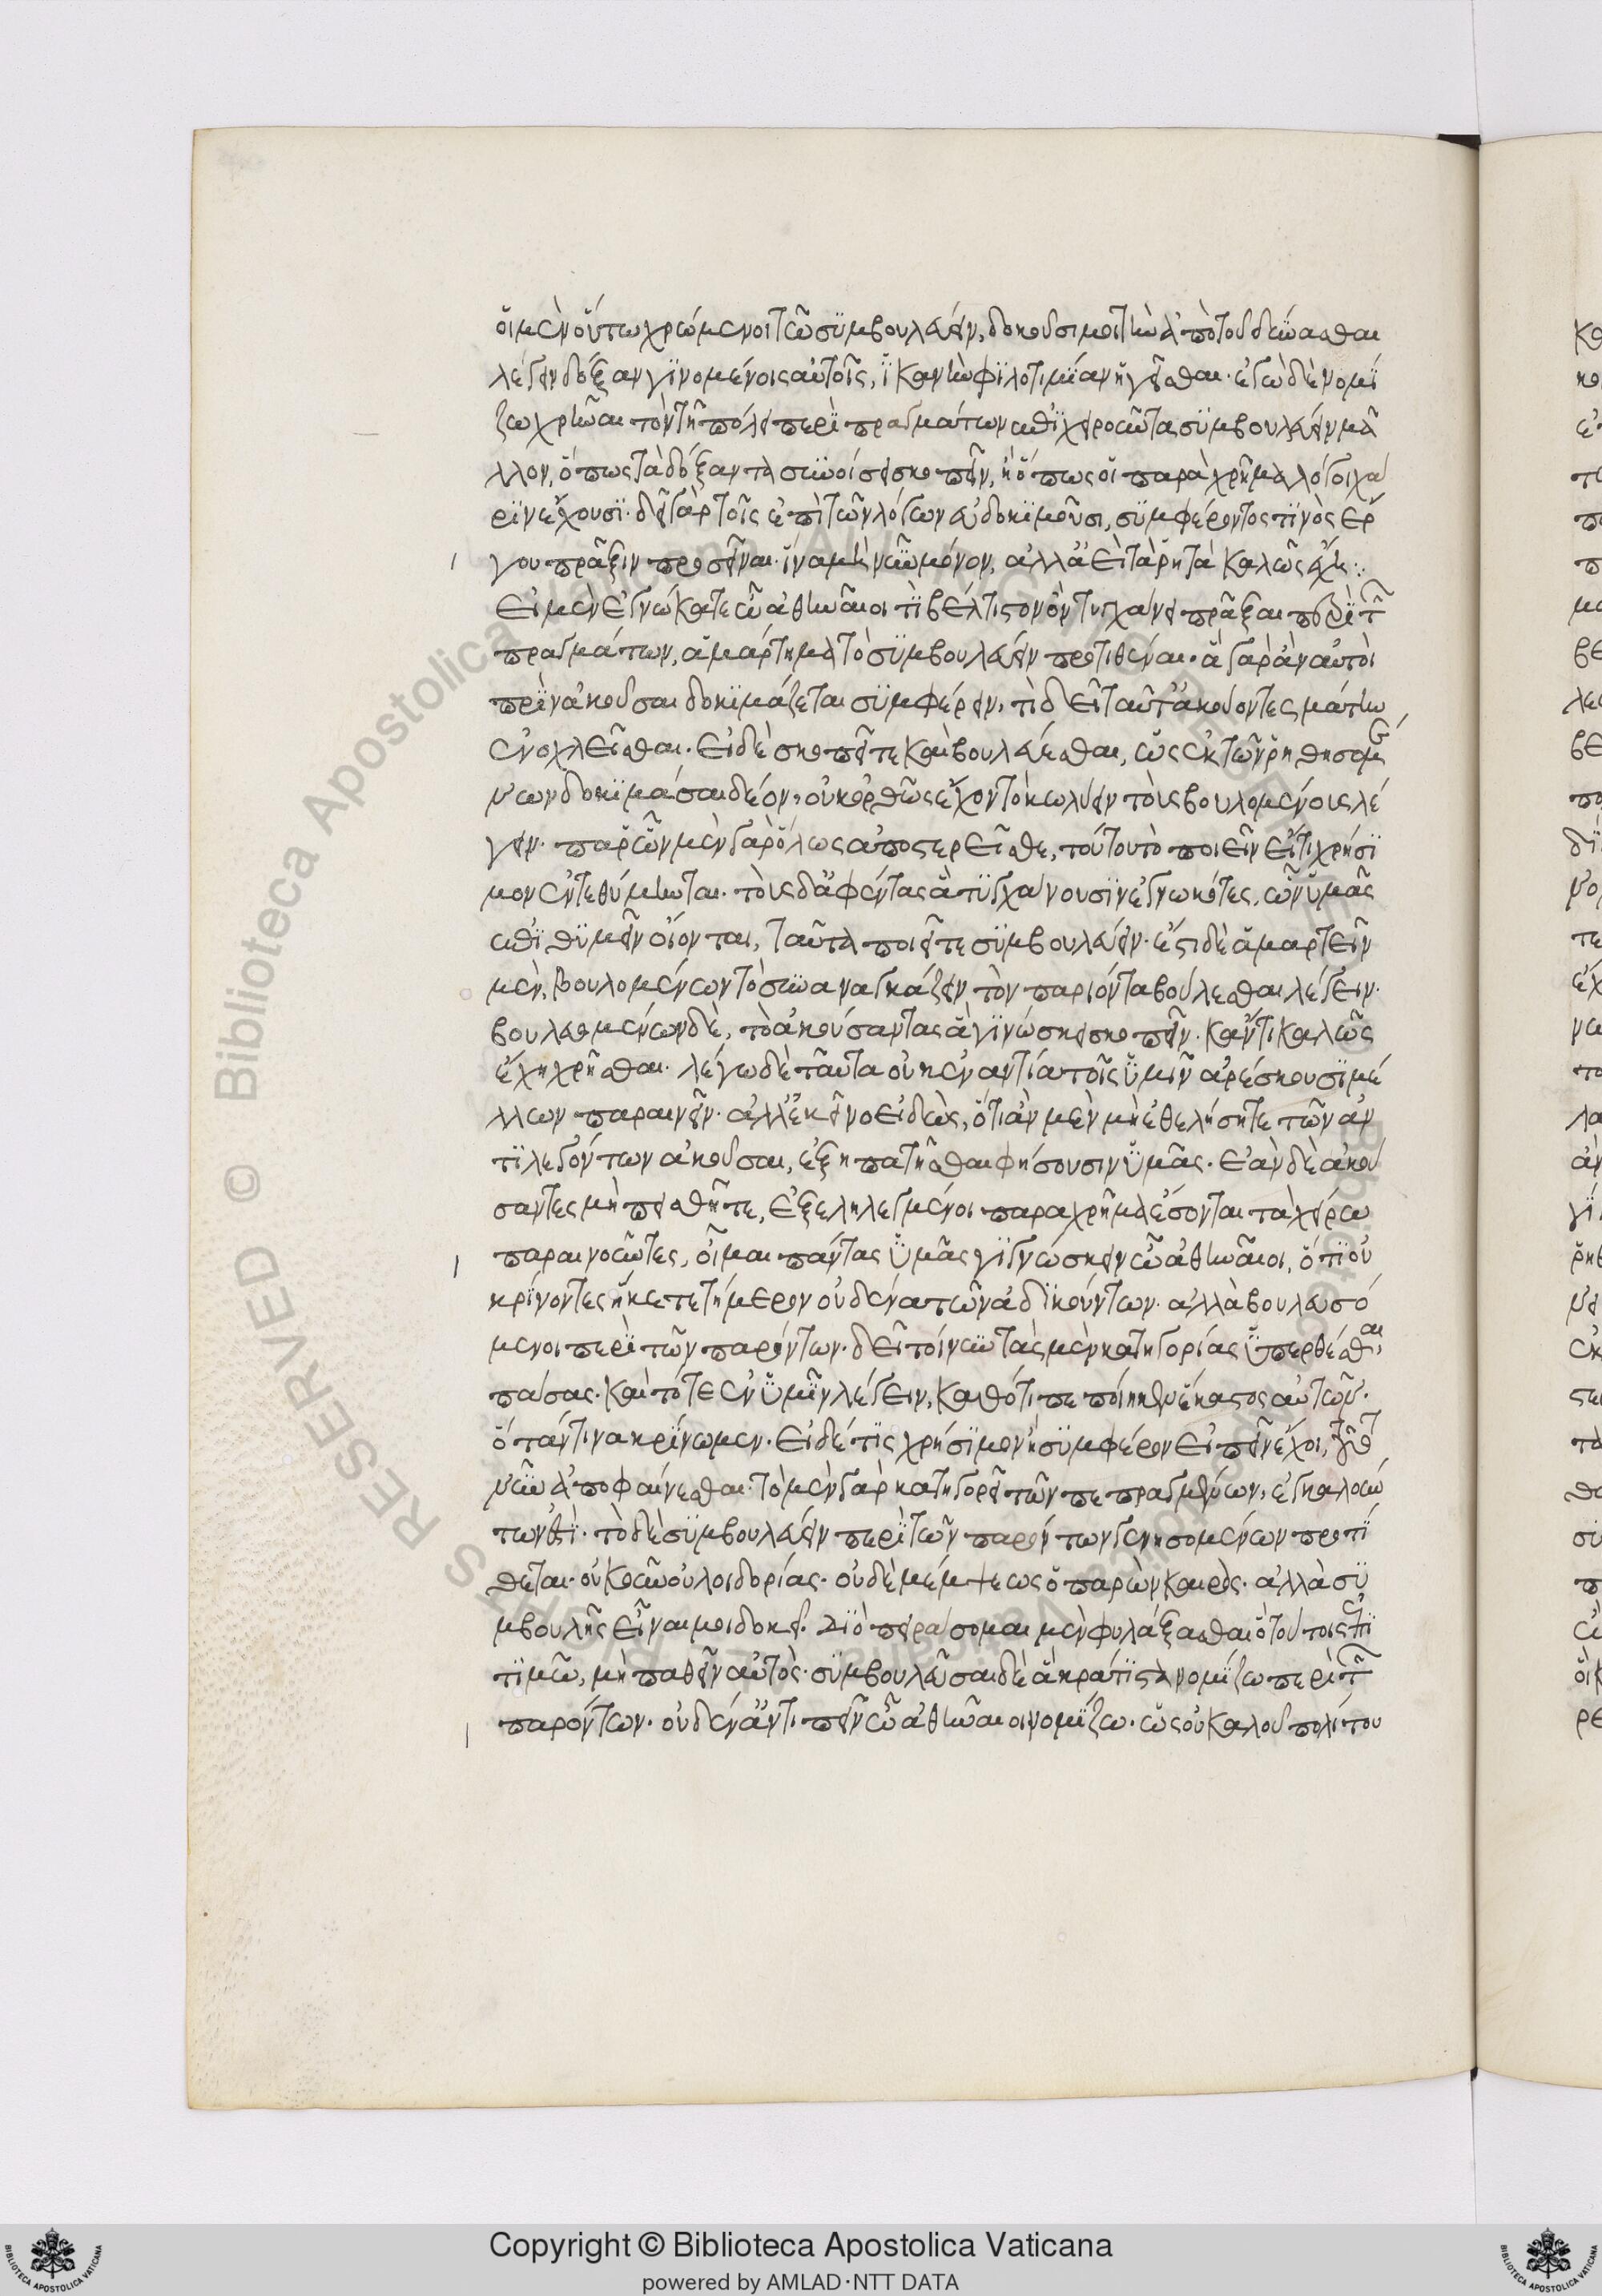 οἱ μὲν οὕτω χρώμενοι τῶ συμβουλεύειν, δοκοῦσι μοι τὴν ἀπὸ τοῦ δύνασθαι
λέγειν δόξαν γινομένοις αὐτοῖς, ἱκανὴν φιλοτιμίαν ἡγεῖσθαι· ἐγὼ δὲ νομί
ζω χρῆναι τὸν τῆ πόλει περὶ πραγμάτων ἐπιχειροῦντα συμβουλεύειν μᾶ
λλον, ὅπως τὰ δόξαντα συνοίσει σκοπεῖν, ἢ ὅπως οἱ παραχρῆμα λόγοι χά
ριν ἔχουσι· δεῖ γὰρ τοῖς ἐπὶ τῶν λόγων εὐδοκιμοῦσι, συμφέροντος τινὸς ἔρ
γου πρᾶξιν προσεῖναι· ἵνα μὴ νῦν μόνον, ἀλλ' ἀεὶ τὰ ῥητὰ καλῶς ἔχη:
Εἰ μὲν ἐγνώκατε ὦ ἀθηναῖοι τί βέλτιστον ὂν τυγχάνει πρᾶξαι περὶ τῶν
πραγμάτων, ἁμάρτημα τὸ συμβουλεύειν προτιθέναι· ἃ γὰρ ἂν αὐτοὶ
πρὶν ἀκοῦσαι δοκιμάζεται συμφέρειν, τί δεῖ ταῦτ' ἀκούοντες μάτην
ἐνοχλεῖσθαι· εἰ δὲ σκοπεῖτε καὶ βουλεύεσθαι, ὡς ἐκ τῶν ῥηθησομέ
νων δοκιμάσαι δέον, οὐκ ὀρθῶς ἔχον τὸ κωλύειν τοὺς βουλομένους λέ
γειν· παρ' ὧν μὲν γὰρ ὅλως ἀποστερεῖσθε, τούτου τὸ ποιεῖν εἴ τι χρήσι
μον ἐντεθύμηται· τοὺς δ' ἀφέντας ἃ τυγχάνουσιν ἐγνωκότες, ὧν ὑμᾶς
ἐπιθυμεῖν οἴονται, ταῦτα ποιεῖτε συμβουλεύειν· ἔστι δὲ ἁμαρτεῖν
μὲν, βουλομένων τὸ συναναγκάζειν τὸν παριόντα βούλεσθαι λέγειν·
βουλευομένων δὲ, τὸ ἀκούσαντας ἃ γινώσκει σκοπεῖν· κἄν τι καλῶς
ἔχη χρῆσθαι· λέγω δὲ ταῦτα οὐκ ἐναντία τοῖς ὑμῖν ἀρέσκουσι μέ
λλων παραινεῖν· ἀλλ' ἐκεῖνο εἰδὼς, ὅτι ἂν μὲν μὴ ἐθελήσητε τῶν ἀν
τιλεγόντων ἀκοῦσαι, ἐξηπατῆσθαι φήσουσιν ὑμᾶς· ἐὰν δὲ ἀκού
σαντες μὴ πεισθῆτε, ἐξεληλεγμένοι παραχρῆμα ἔσονται τὰ χείρω
παραινοῦντες, οἶμαι πάντας ὑμᾶς γιγνώσκειν ὦ ἀθηναῖοι, ὅτι οὐ
κρίνοντες ἥκετε τήμερον οὐδένα τῶν ἀδικούντων· ἀλλὰ βουλευσό
μενοι περὶ τῶν παρόντων· δεῖ τοίνυν τὰς μὲν κατηγορίας ὑπερθέσθαι
πάσας· καὶ τότε ἐν ὑμῖν λέγειν, καθ' ὅ τι πεποίηκεν ἕκαστος αὐτῶν·
ὅταν τινα κρίνωμεν· εἰ δέ τις χρήσιμον ἢ συμφέρον εἰπεῖν ἔχοι, τοῦτο
νῦν ἀποφαίνεσθαι· τὸ μὲν γὰρ κατηγορεῖν τῶν πεπραγμένων, ἐγκαλούν
των ἐστί· τὸ δὲ συμβουλεύειν περὶ τῶν παρόντων γενησομένων προτί
θεται· οὐκοῦν οὐ λοιδορίας· οὐδὲ μέμψεως ὁ παρὼν καιρὸς· ἀλλὰ συ
μβουλῆς εἶναι μοι δοκεῖ· Διὸ πειράσομαι μὲν φυλάξασθαι ὃ τούτοις ἐπι
τιμῶ, μὴ παθεῖν αὐτὸς· συμβουλεῦσαι δὲ ἃ κράτιστα νομίζω περὶ τῶν
παρόντων· οὐδέν' ἂν ἀντειπεῖν ὦ ἀθηναῖοι νομίζω· ὡς οὐ καλοῦ πολίτου
Copyright © Biblioteca Apostolica Vaticana
powered by AMLAD·NTT DATA